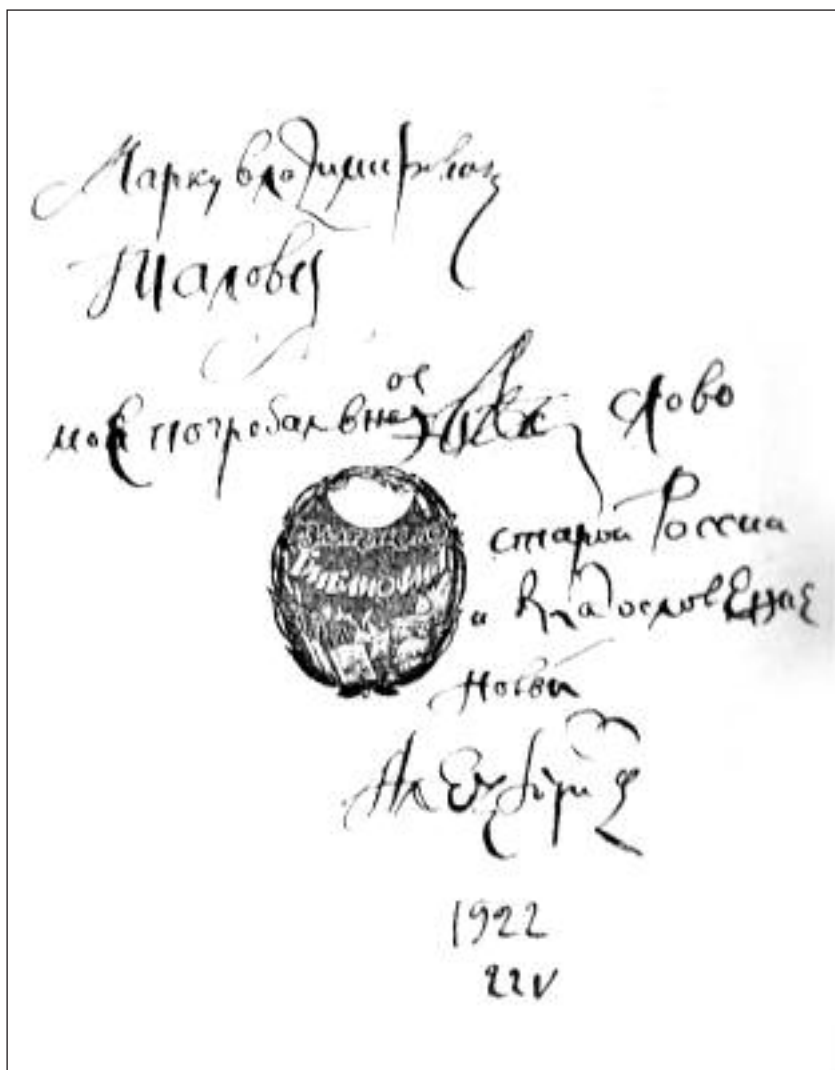 Марку Владимировичу
Талову
мое погребальное слово
старой России
и благословение
новой
1922
22 V